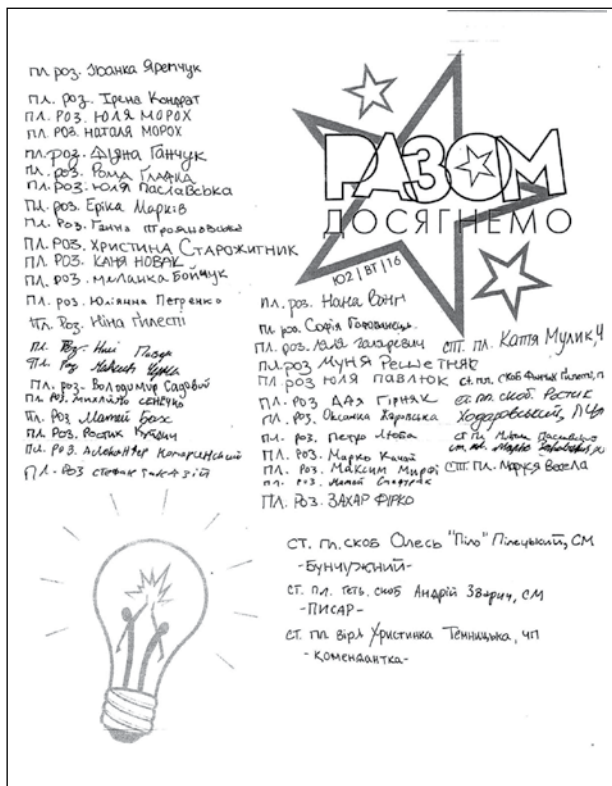 пл. роз. Іванка Яремчук
пл. роз. Ірена Кондрат
пл. роз. Юля Морох
пл. роз. Наталя Морох
пл. роз. Діяна Ганчук
пл. роз. Рома Гладка
пл. роз. Юля Паславська
пл. роз. Еріка Марків
пл. роз. Ганна Трояновська
пл. роз. Христина Старожитник
пл. роз. Каня Новак
пл. роз. Меланка Бойчук
пл. роз. Юліянна Петренко
пл. роз. Ніна Гилесті
пл. роз.
пл. роз. Максим
пл. роз. Володимир Садовий
пл. роз. Михайло Сенечко
пл. роз. Матей Бох
пл. роз. Ростик
пл. роз. Александер
пл. роз. Стефан
РАЗОМ
ДОСЯГНЕМО
Ю2 | ВТ | 16
пл. роз. Нана Вонг
пл. роз. Софія
пл. роз. Ляля Гагаревич
пл. роз Муня Решетняк
пл. роз Юля Павлюк
пл. роз Дая Гірняк
пл. роз. Оксанка
пл. роз. Петро Люба
пл. роз. Марко Качай
пл. роз. Максим
пл. роз. Матей
пл. роз. Захар Фірко
ст. пл. Катя Мулик, Ч
ст. пл. скоб
ст. пл. скоб. Ростик
Ходоровський, ЛЧ
ст. пл.
ст. пл. Марко
ст. пл. Маруся Весела
ст. пл. скоб Олесь "Піло" Пілецький, СМ
-Бунчужний-
ст. пл. геть. скоб Андрій Зварич, СМ
-Писар-
ст. пл. вірл Христинка Темницька, ЧП
-Комендантка-